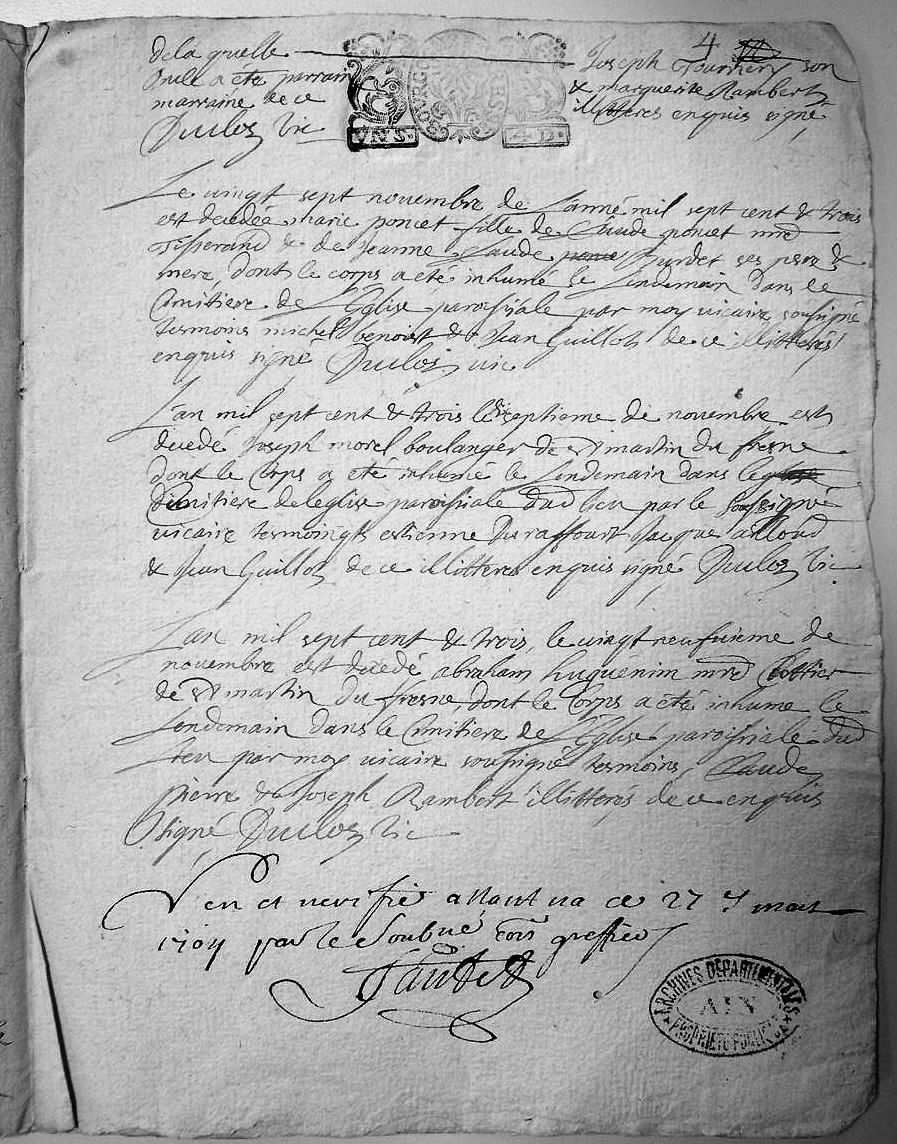 4
de la quelle Joseph Tournery son
oncle a été parrain & marguerite Rambert
marraine de ce illitteres enquis signé
Duclos vic
BOURGO
Le vingt sept novembre de Lanné mil sept cent & trois
est decedée marie poncet fille de Claude poncet mre
Tisserand & de Jeanne Claude Burdet ses pere &
mere, dont le corps a eté inhumé le Lendemain dans le
Cimittiere de L'Eglise paroissiale par moy vicaire soussigné
tesmoins michel benoist & Jean Guillot de ce illitterés
enquis signé Duclos vic
Lan mil sept cent & trois le septieme de novembre est
decedé Joseph morel boulanger de St martin du fresne
dont le Corps a eté inhumé le Lendemain dans le
Cimitiere de leglise paroissiale dud lieu par le soussigné
vicaire tesmoingts estienne Duraffourt Jacque alloud
& Jean Guillot de ce illitteres enquis signé Duclos vic
Lan mil sept cent & trois, le vingt neufvieme de
novembre est decedé abraham huguenin mre
de St martin du fresne dont le Corps a eté inhume le
Lendemain dans le Cimitiere de L'Eglise paroissiale dud
Lieu par moy vicaire soussigné tesmoins Claude
pierre & Joseph Rambert illitterés de ce enquis
signé Duclos vic
Veu et verifié a Nantua ce 27 mars
1704 par le Soubné greffier
ARCHINES DÉPARTEMENTALES
AIN
PROPRIÉTÉ PUBLIQUE